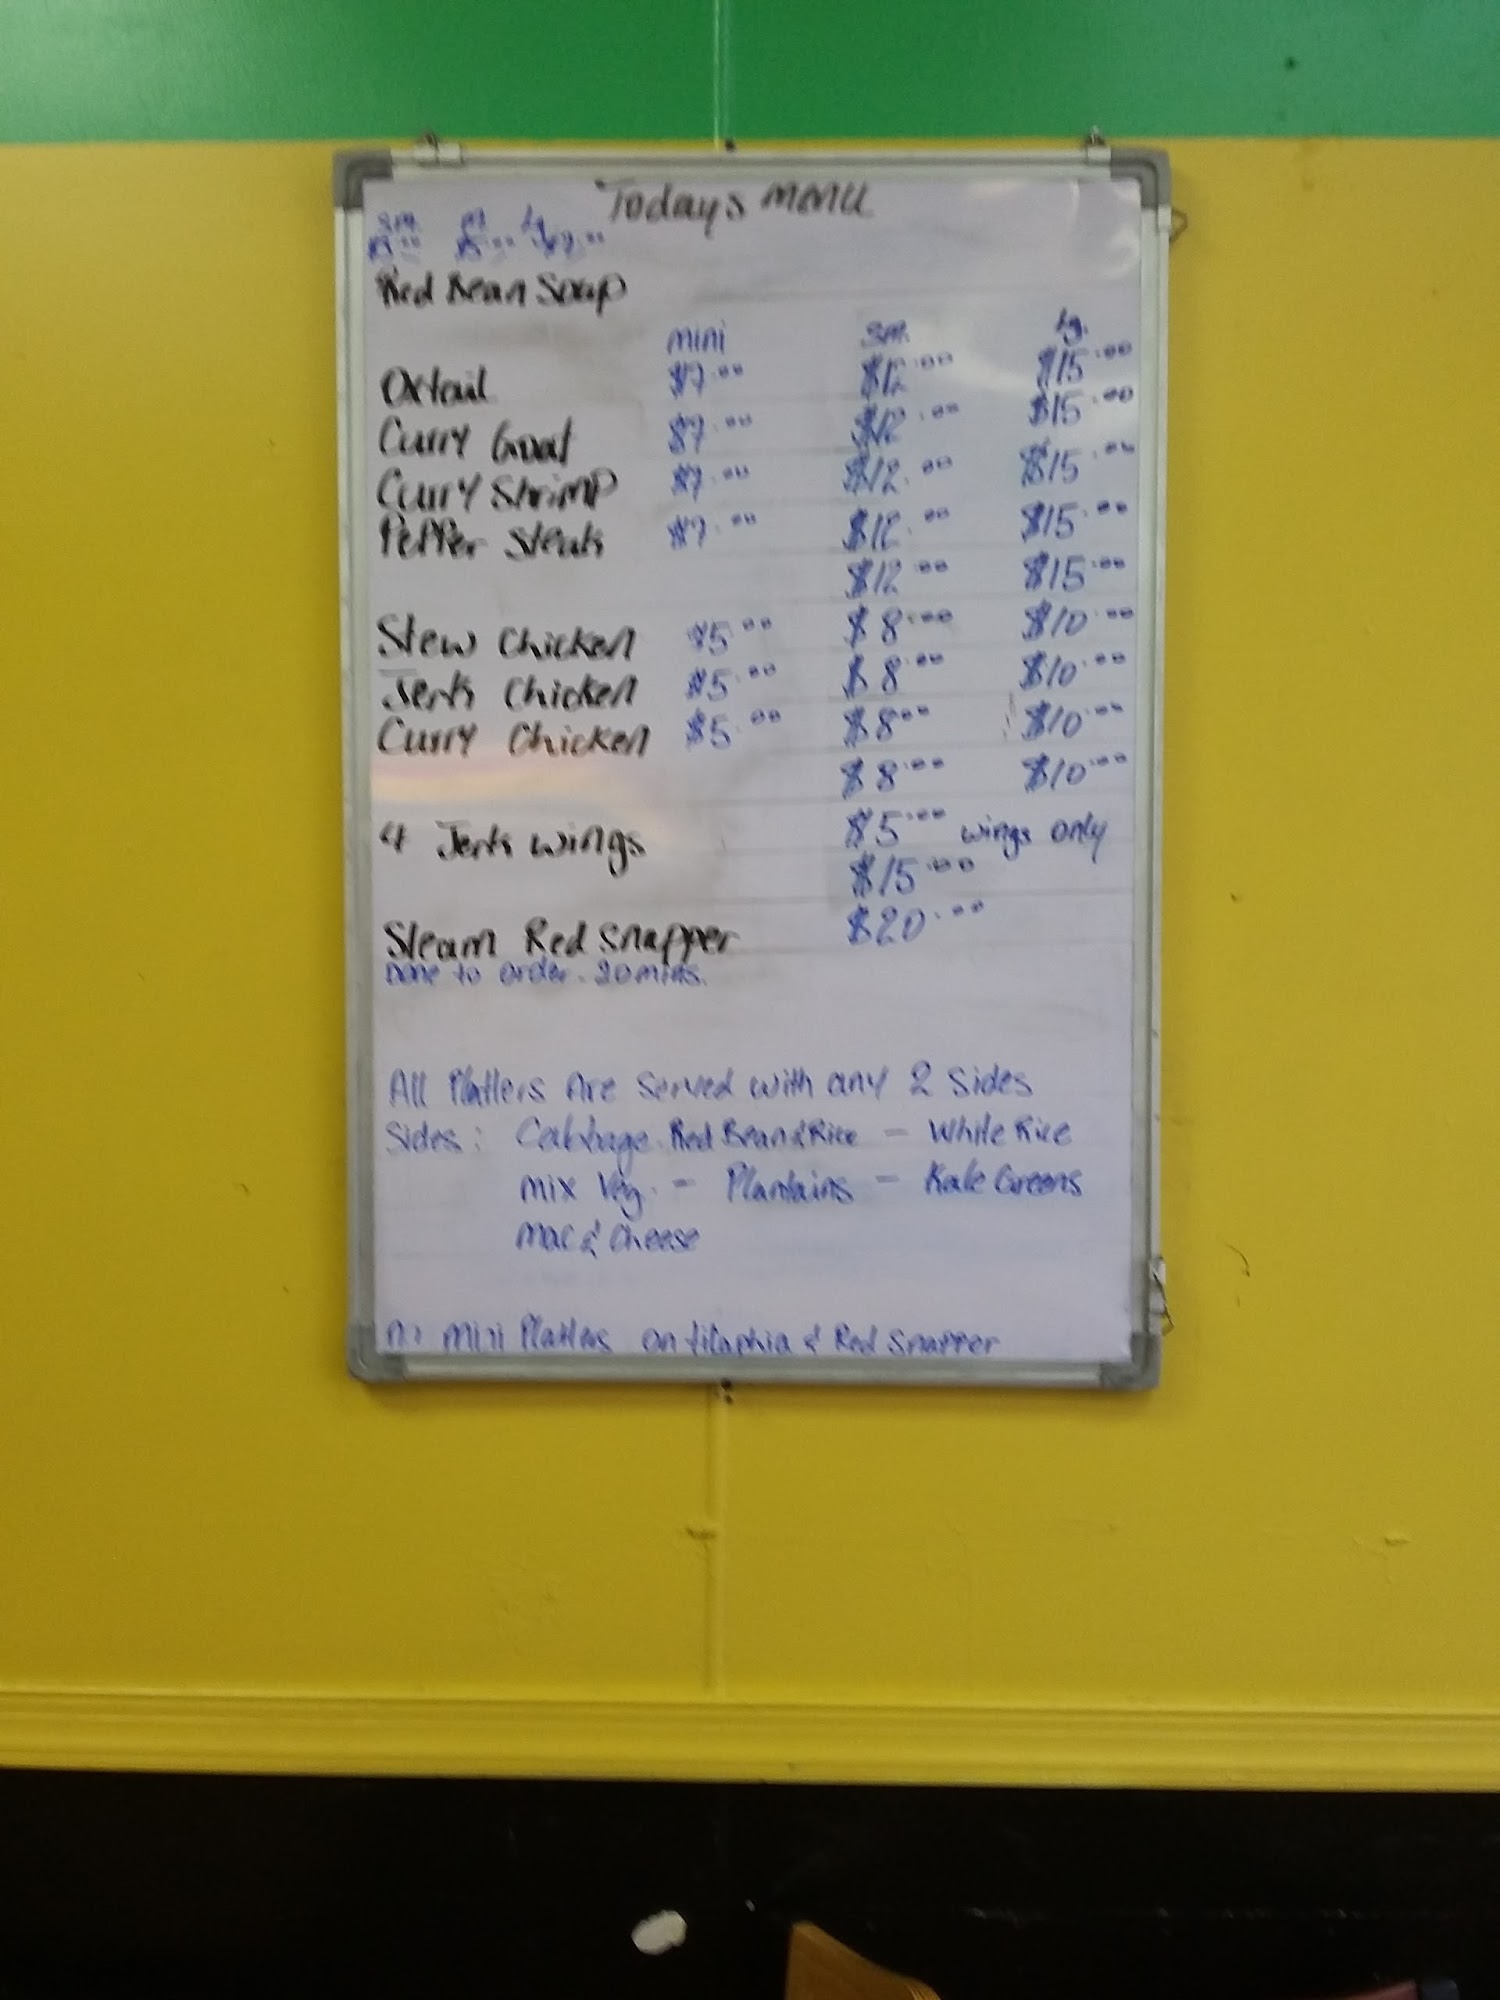 Todays menu
sm. pt Lg
$3.00 $5.00 $7.00
Red Bean Soup
mini sm. Lg.
Oxtail $7.00 $12.00 $15.00
Curry Goat $7.00 $12.00 $15.00
Curry Shrimp $7.00 $12.00 $15.00
Pepper Steak $7.00 $12.00 $15.00
$12.00 $15.00
Stew Chicken $5.00 $8.00 $10.00
Jerk Chicken $5.00 $8.00 $10.00
Curry Chicken $5.00 $8.00 $10.00
$8.00 $10.00
4 Jerk wings $5.00 wings only
$15.00
Steam Red Snapper $20.00
Done to order. 20 mins.
All Platters Are Served with any 2 Sides
Sides: Cabbage. Red Bean & Rice - White Rice
mix Veg. - Plantains - Kale Greens
mac & Cheese
no mini Platters on tilaphia & Red Snapper